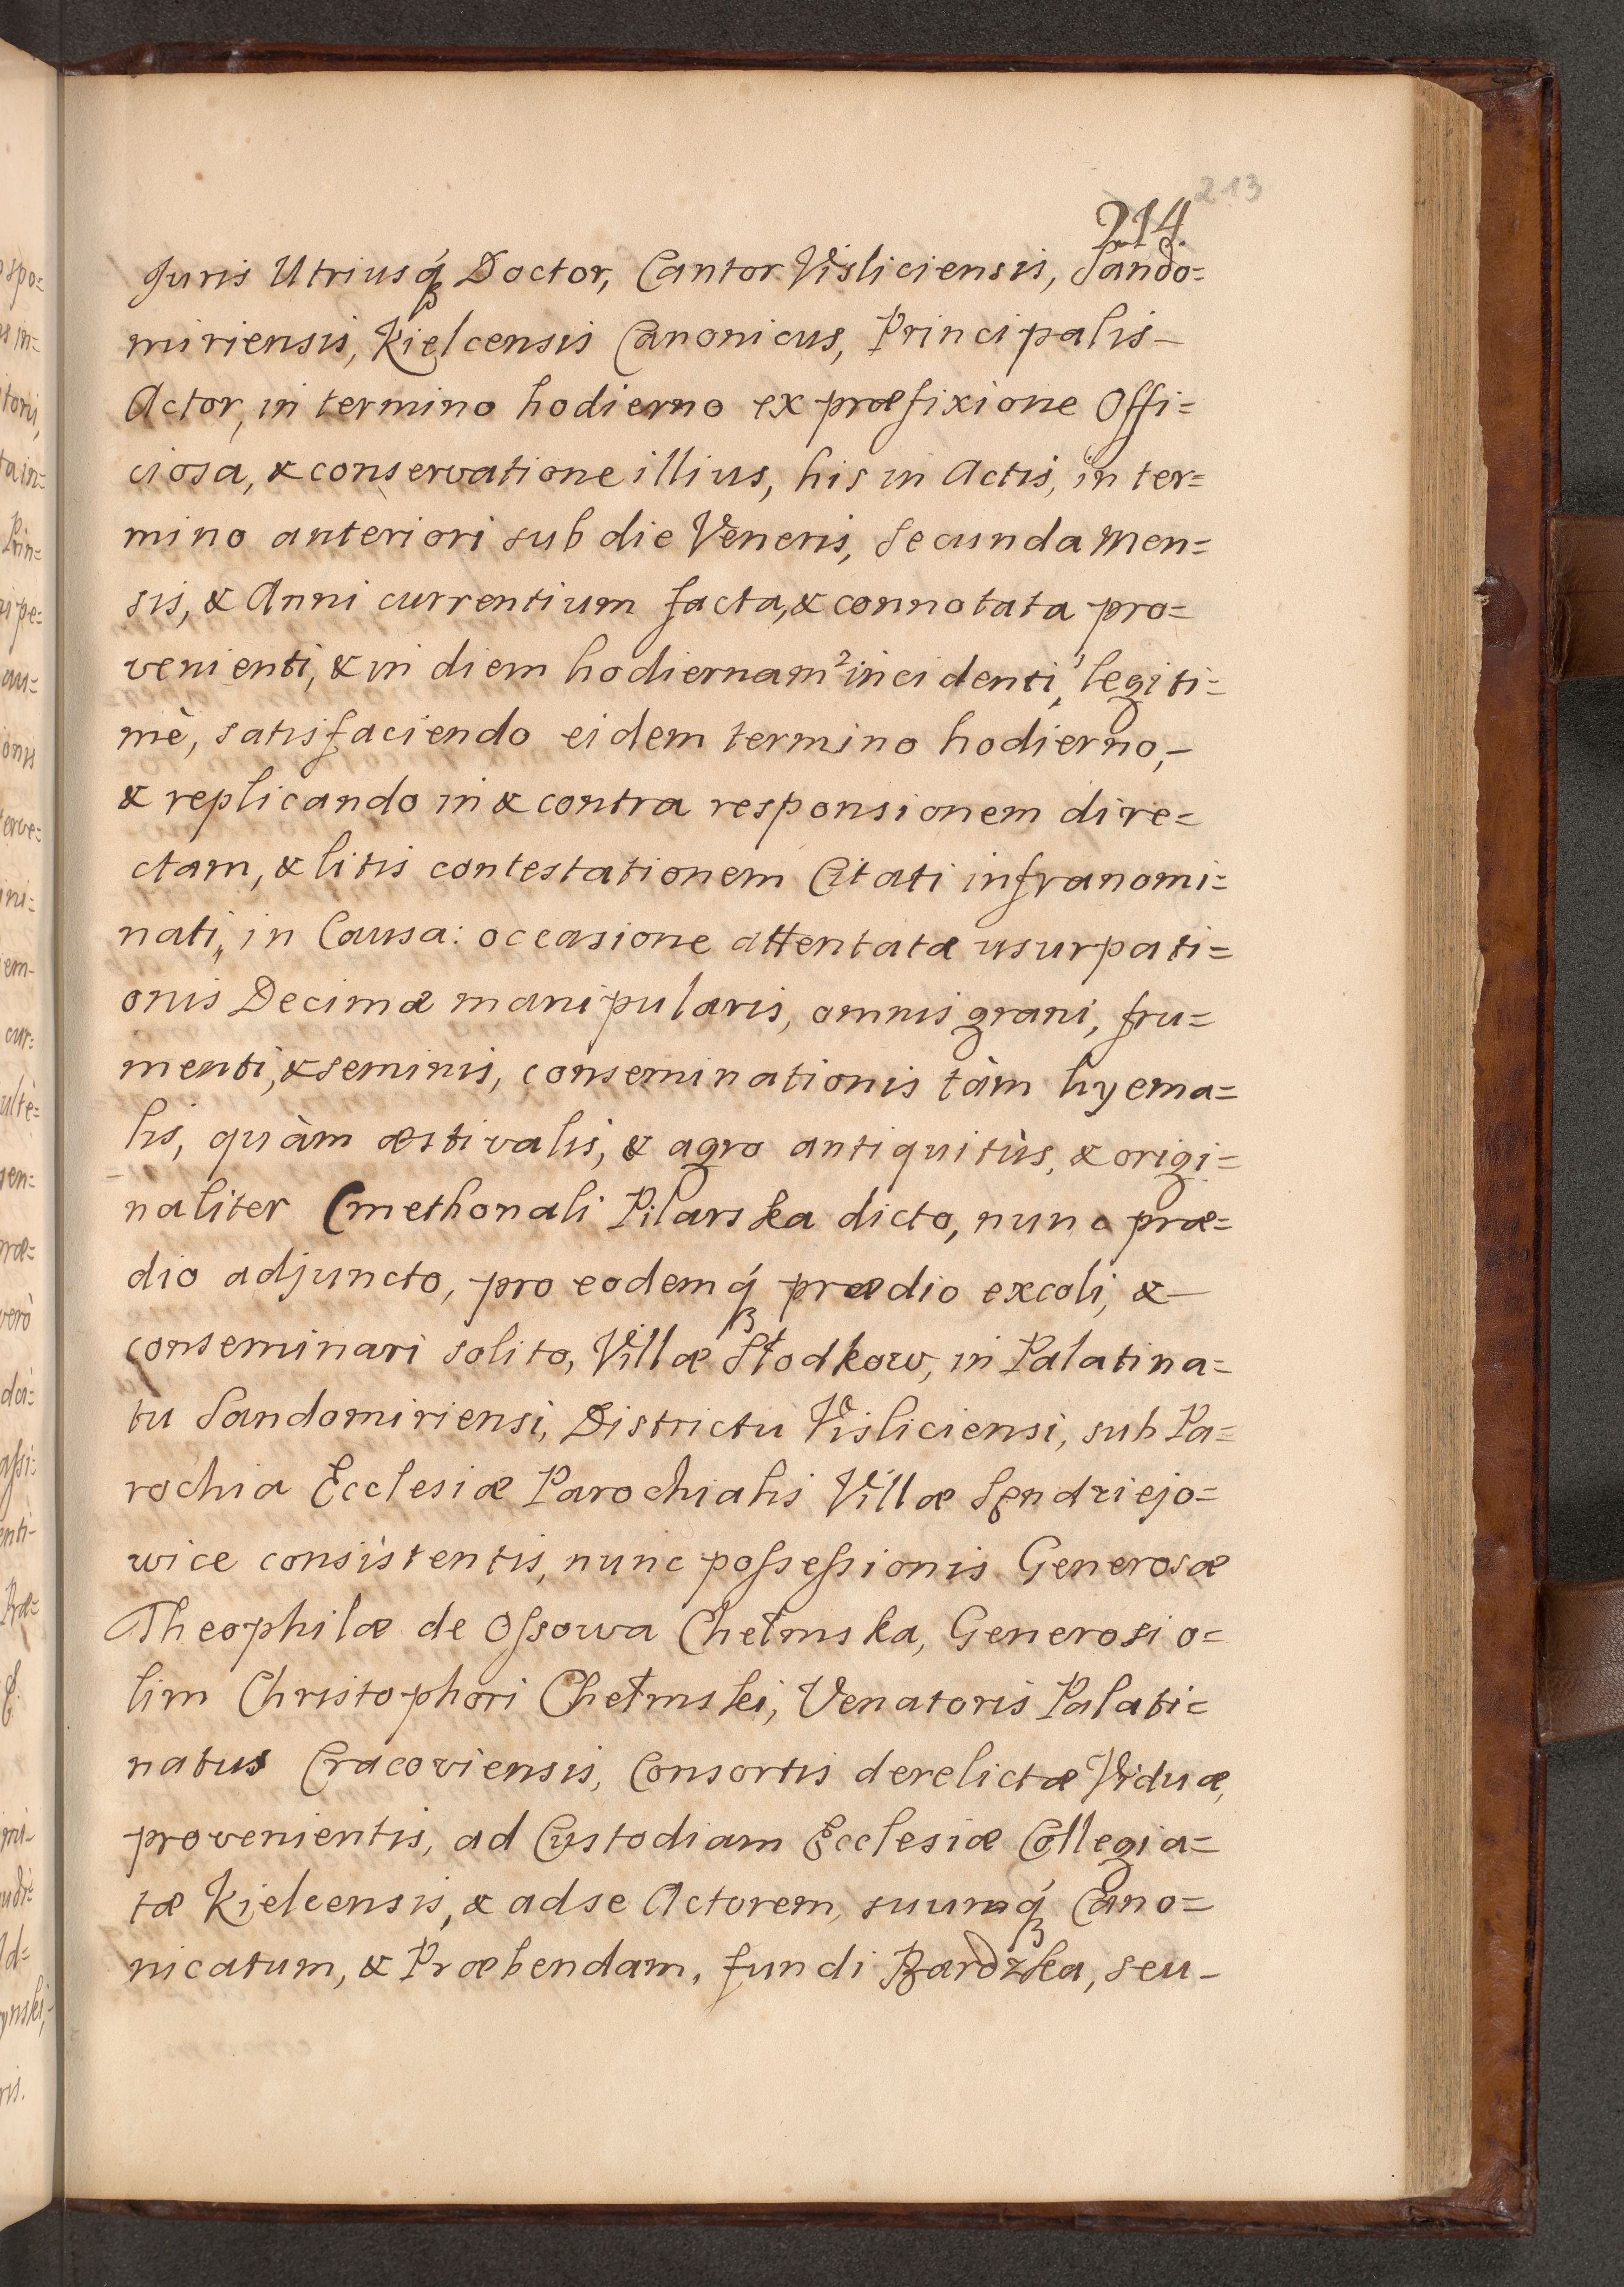 213
214.
Juris Utriusq́ꝫ Doctor, Cantor Visliciensis, Sando=
miriensis, Kielcensis Canonicus, Principalis –
Actor, in termino hodierno ex præfixione Offi=
ciosa, & conservatione illius, his in Actis, in ter=
mino anteriori sub die Veneris, Secunda Men=
sis, & Anni currentium facta, & connotata pro=
venienti, & in diem hodiernam ² incidenti, ¹ legiti=
mè, satisfaciendo eidem termino hodierno, –
& replicando in & contra responsionem dire=
ctam, & litis contestationem Citati infranomi=
nati, in Causa: occasione attentatæ usurpati=
onis Decimæ manipularis, omnis grani, fru=
menti, & seminis, conseminationis tàm hyema=
lis, quàm æstivalis, & agro antiquitùs, & origi=
naliter Cmethonali Pilarska dicto, nunc præ=
dio adjuncto, pro eodemq́ꝫ prædio excoli, & –
conseminari solito, Villæ Słodkow, in Palatina=
tu Sandomiriensi, Districtu Visliciensi, sub Pa=
rochia Ecclesiæ Parochialis Villæ Sędziejo=
wice consistentis, nunc possessionis Generosæ
Theophilæ de Ossowa Chełmska, Generosi o=
lim Christophori Chełmski, Venatoris Palati=
natus Cracoviensis, Consortis derelictæ Viduæ,
provenientis, ad Custodiam Ecclesiæ Collegia=
tæ Kielcensis, & ad se Actorem, suumq́ꝫ Cano=
nicatum, & Præbendam, fundi Bardzka, seu –